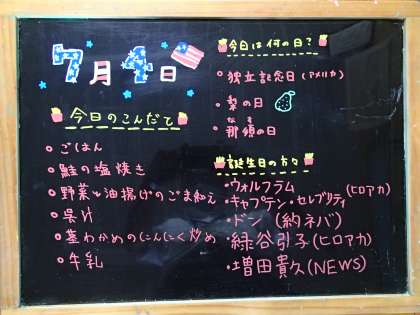 7月4日
今日のこんだて
ごはん
鮭の塩焼き
野菜と油揚げのごま和え
呉汁
茎わかめのにんにく炒め
牛乳
今日は何の日？
独立記念日（アメリカ）
梨の日
なす
那須の日
誕生日の方々
・ウォルフラム
・キャプテン・セレブリティ（ヒロアカ）
・ドン（約ネバ）
・緑谷引子（ヒロアカ）
・増田貴久（NEWS）